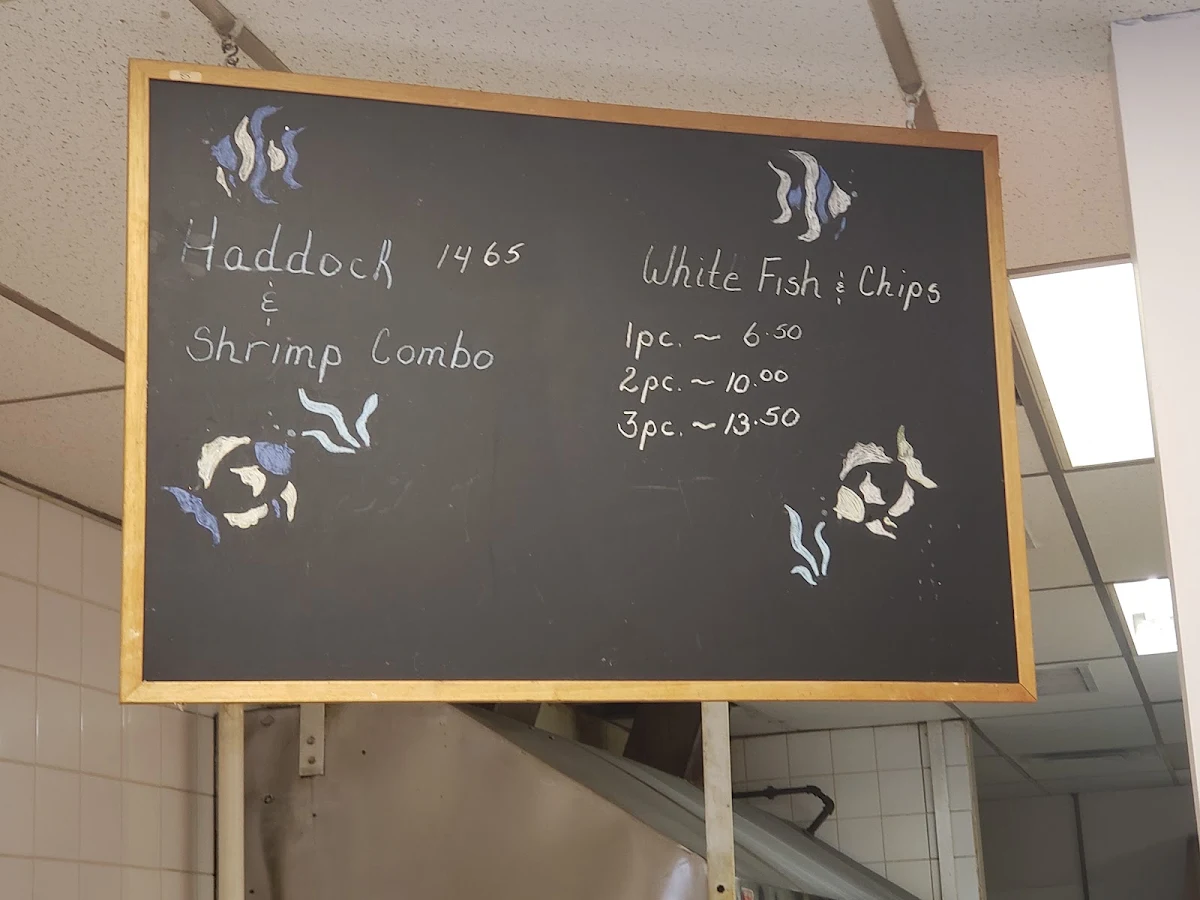 Haddock 1465
&
Shrimp Combo
White Fish & Chips
1pc. ~ 6.50
2pc. ~ 10.00
3pc. ~ 13.50